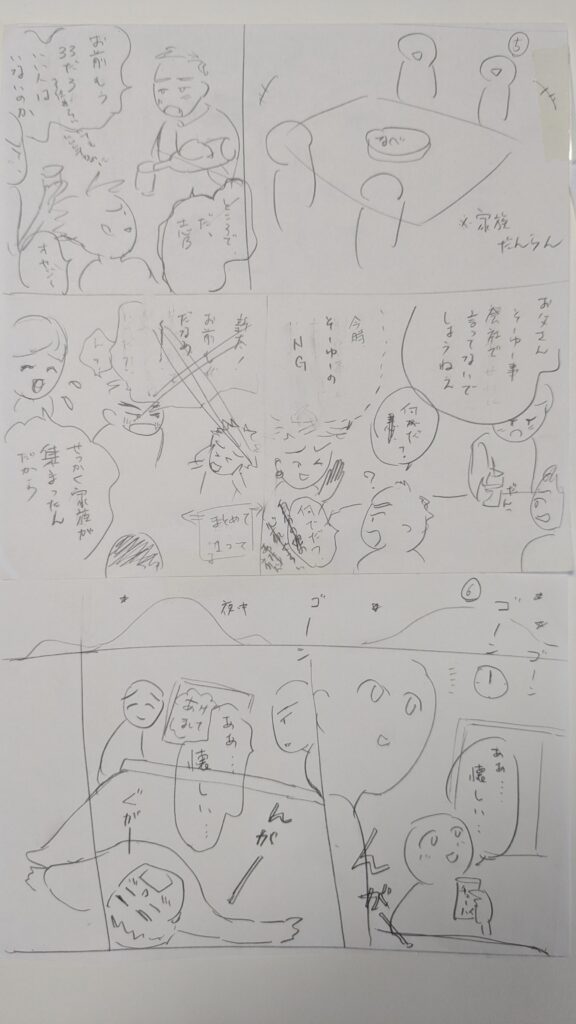 ⑤
なべ
※家族
だんらん
ところで
だ、
お前もう
33だろ
いい人は
いないのか
オヤジ〜
お父さん
そーゆー事
会社で
言ってないで
しょうねえ
だん
何がだ?
今時
そーゆーの
NG
何でだっ
お前も
だなあ
せっかく家族が
集まったん
だから
まとめて
1つて
⑥
ゴーン
ゴーン
夜中
ゴーン
ああ……
懐しい…
んがー
ああ……
懐しい…
あけ
まして
んがー
ぐがー